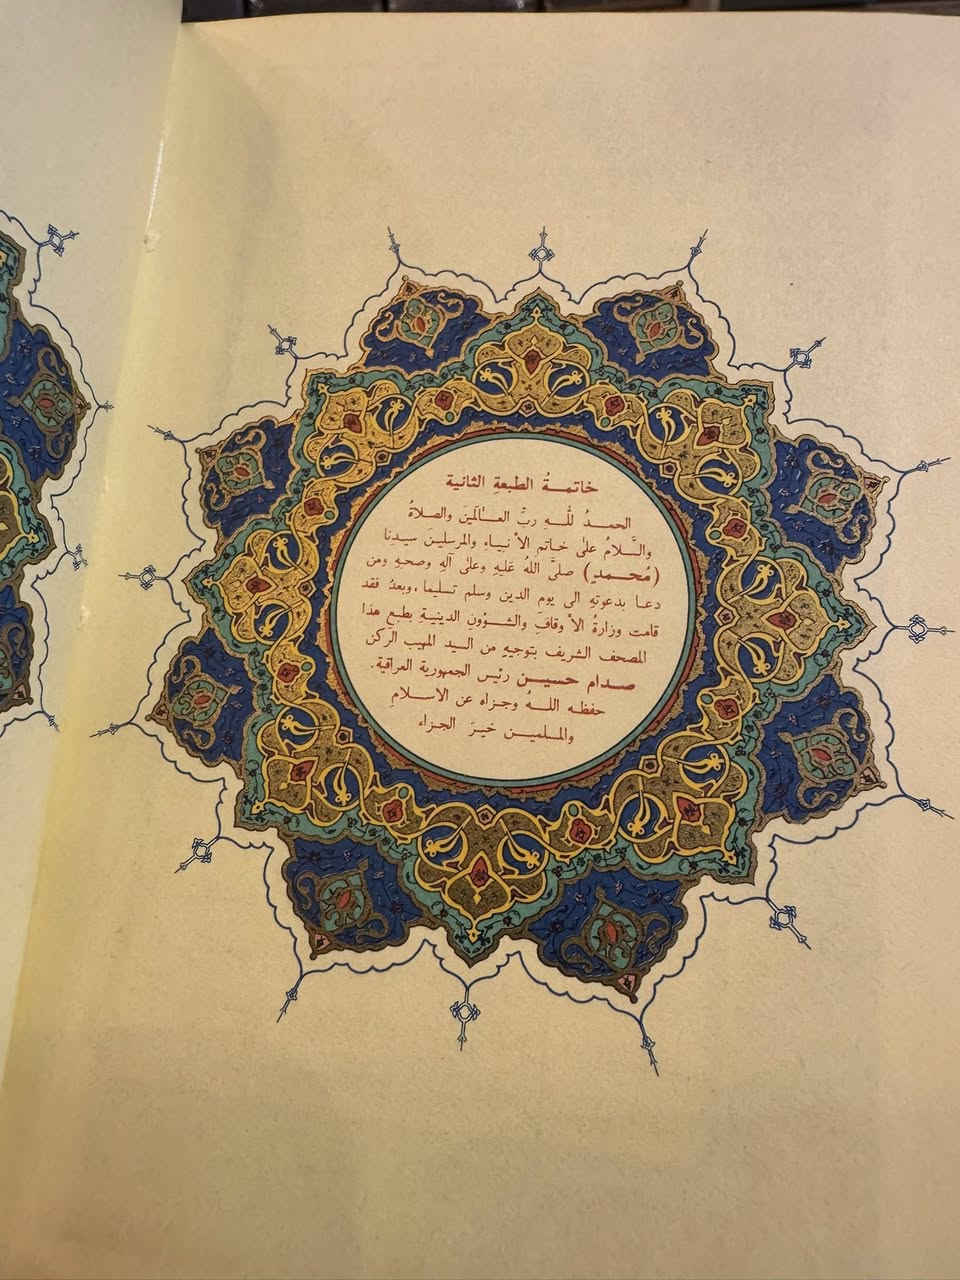 خاتمـةُ الطبعةِ الثانية
الحمدُ للّهِ ربِّ العالمينَ والصلاةُ
والسَّلامُ على خاتم الأنبياءِ والمرسلينَ سيدنا
(مُحمدٍ) صلىَّ اللهُ عَليهِ وعلى آلهِ وصحبهِ ومن
دعا بدعوتهِ الى يوم الدين وسلم تسليما، وبعدُ فقد
قامت وزارةُ الأوقافِ والشؤون الدينية بطبعِ هذا
المصحف الشريف بتوجيهٍ من السيد المهيب الركن
صدام حسين رئيس الجمهورية العراقية.
حفظه اللهُ وجزاه عن الاسلامِ
والمسلمين خيرَ الجزاء